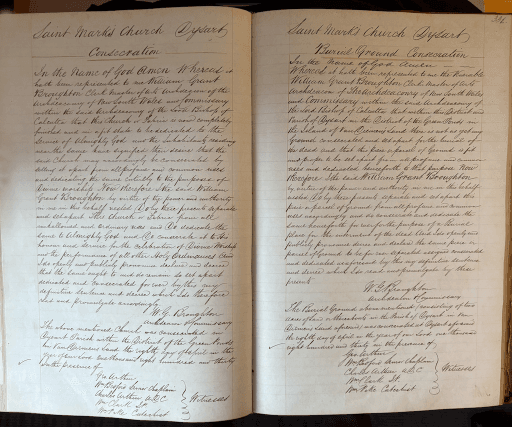 Saint Mark's Church Dysart
Consecration
In the Name of God Amen Whereas it
hath been represented to me William Grant
Broughton Clerk Master of Arts Archdeacon of the
Archdeaconry of New South Wales and Commissary
within the said Archdeaconry of the Lord Bishop of
Calcutta that this Church or Fabric is now completely
finished and in a fit state to be dedicated to the
Service of Almighty God and the inhabitants residing
near the same have signified their desire that the
said Church may accordingly be consecrated by
setting it apart from all profane and common uses
and dedicating the same entirely to the purposes of
Divine worship Now therefore I the said William
Grant Broughton by virtue of the power and authority
in me on this behalf vested Do by these presents separate
and set apart this Church or Fabric from all
unhallowed and ordinary uses and Do dedicate the
same to Almighty God and Do consecrate it to his
honour and service for the celebration of Divine Worship
and the performance of all other Holy Ordinances
do openly and publicly pronounce declare and decree
that the same ought to be and remain so set apart
dedicated and consecrated for ever by this my
definitive sentence and decree which I do therefore
read and promulgate accordingly
W. G. Broughton
Archdeacon & Commissary
The above mentioned Church was consecrated in
Dysart Parish within the District of the Green Ponds
Van Diemens Land the eighth day of April in the
year one thousand eight hundred and thirty
in the presence of
Geo Arthur
Wm Bedford Senior Chaplain
Charles Arthur A.D.C
Wm Pike Catechist
Witnesses
Saint Mark's Church Dysart
Burial Ground Consecration
In the Name of God Amen
Whereas it hath been represented to me the Venerable
William Grant Broughton Clerk Master of Arts
Archdeacon of The Archdeaconry of New South Wales
and Commissary within the said Archdeaconry of
the Lord Bishop of Calcutta that within the District and
Parish of Dysart in the District of the Green Ponds in
the Island of Van Diemens Land there is not as yet any
Ground consecrated and set apart for the burial of
the dead and that this a parcel of Ground is a fit
and proper to be set apart from all profane and common
uses and dedicated henceforth to that purpose Now
Therefore I the said William Grant Broughton
by virtue of the power and authority in me on this behalf
vested Do by these presents separate and set apart this
parcel of Ground from all profane and common
uses accordingly and do consecrate and dedicate the
same henceforth for ever for the purpose of a Burial
place for the interment of the dead And I do openly and
publicly pronounce decree and declare the same piece or
parcel of Ground to be for ever separated assigned consecrated
and dedicated by this my definitive sentence
and decree which I do read and promulgate by these
presents
W. G. Broughton
Archdeacon & Commissary
The Burial Ground above mentioned
in Van
Diemens Land aforesaid was consecrated at Dysart aforesaid
the eighth day of April in the year of our Lord one thousand
eight hundred and thirty in the presence of
Geo Arthur
Wm Bedford Senior Chaplain
Charles Arthur A.D.C
Wm Pike Catechist
Witnesses